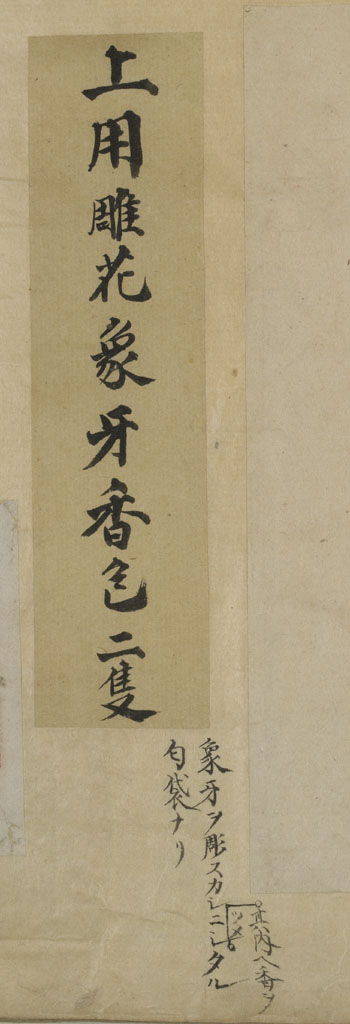 上用雕花象牙香包二隻
其内ヘ香ヲ
ツメ
象牙ヲ彫スカシニシタル
匂袋ナリ